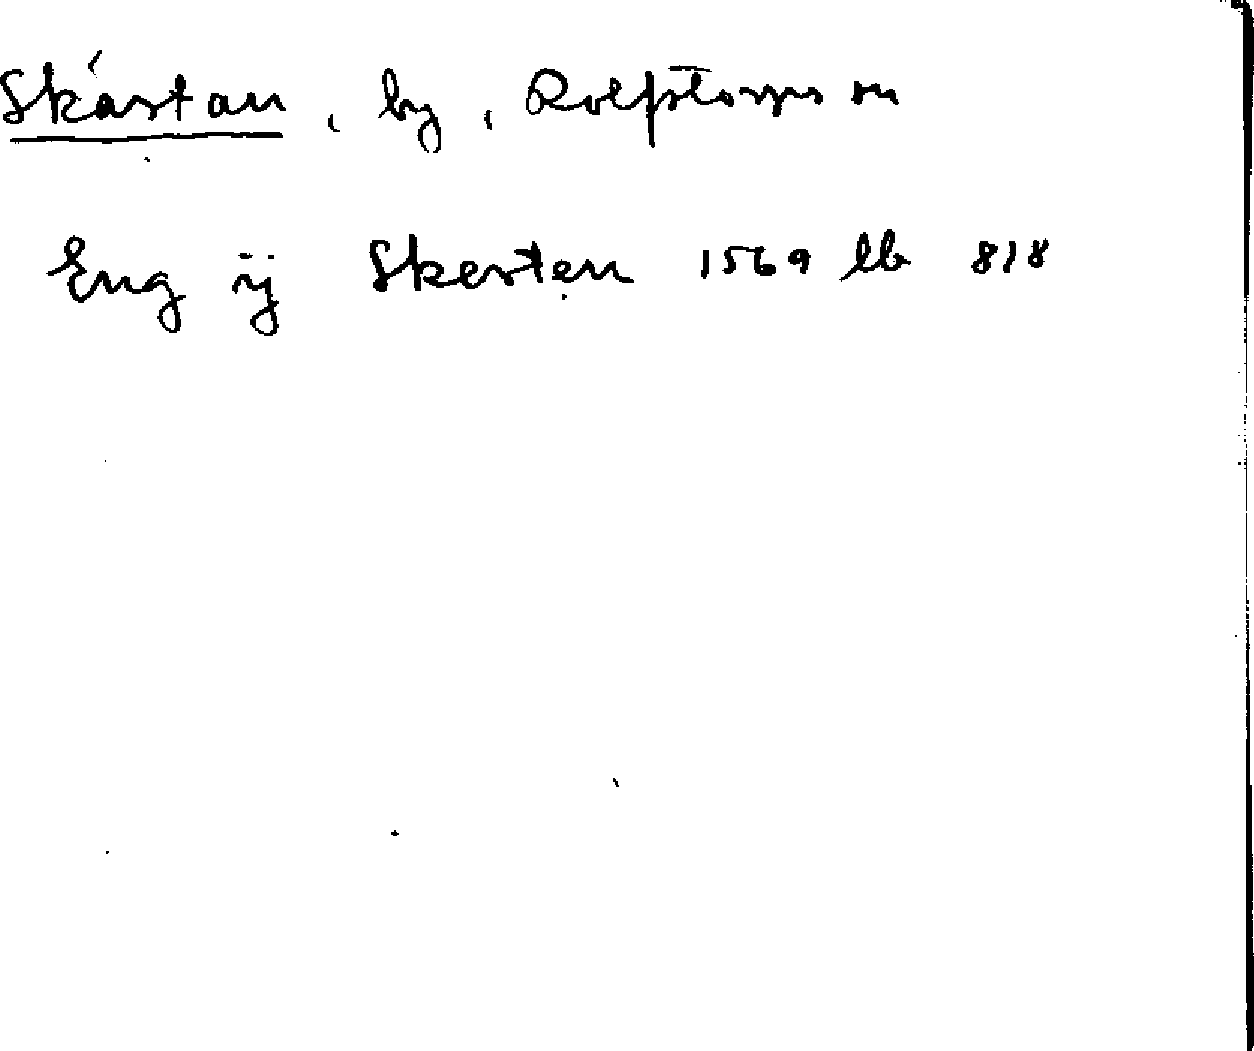 Skástan, by, Rolfstorps sn
Eng ij Skesten 1569 lb 818